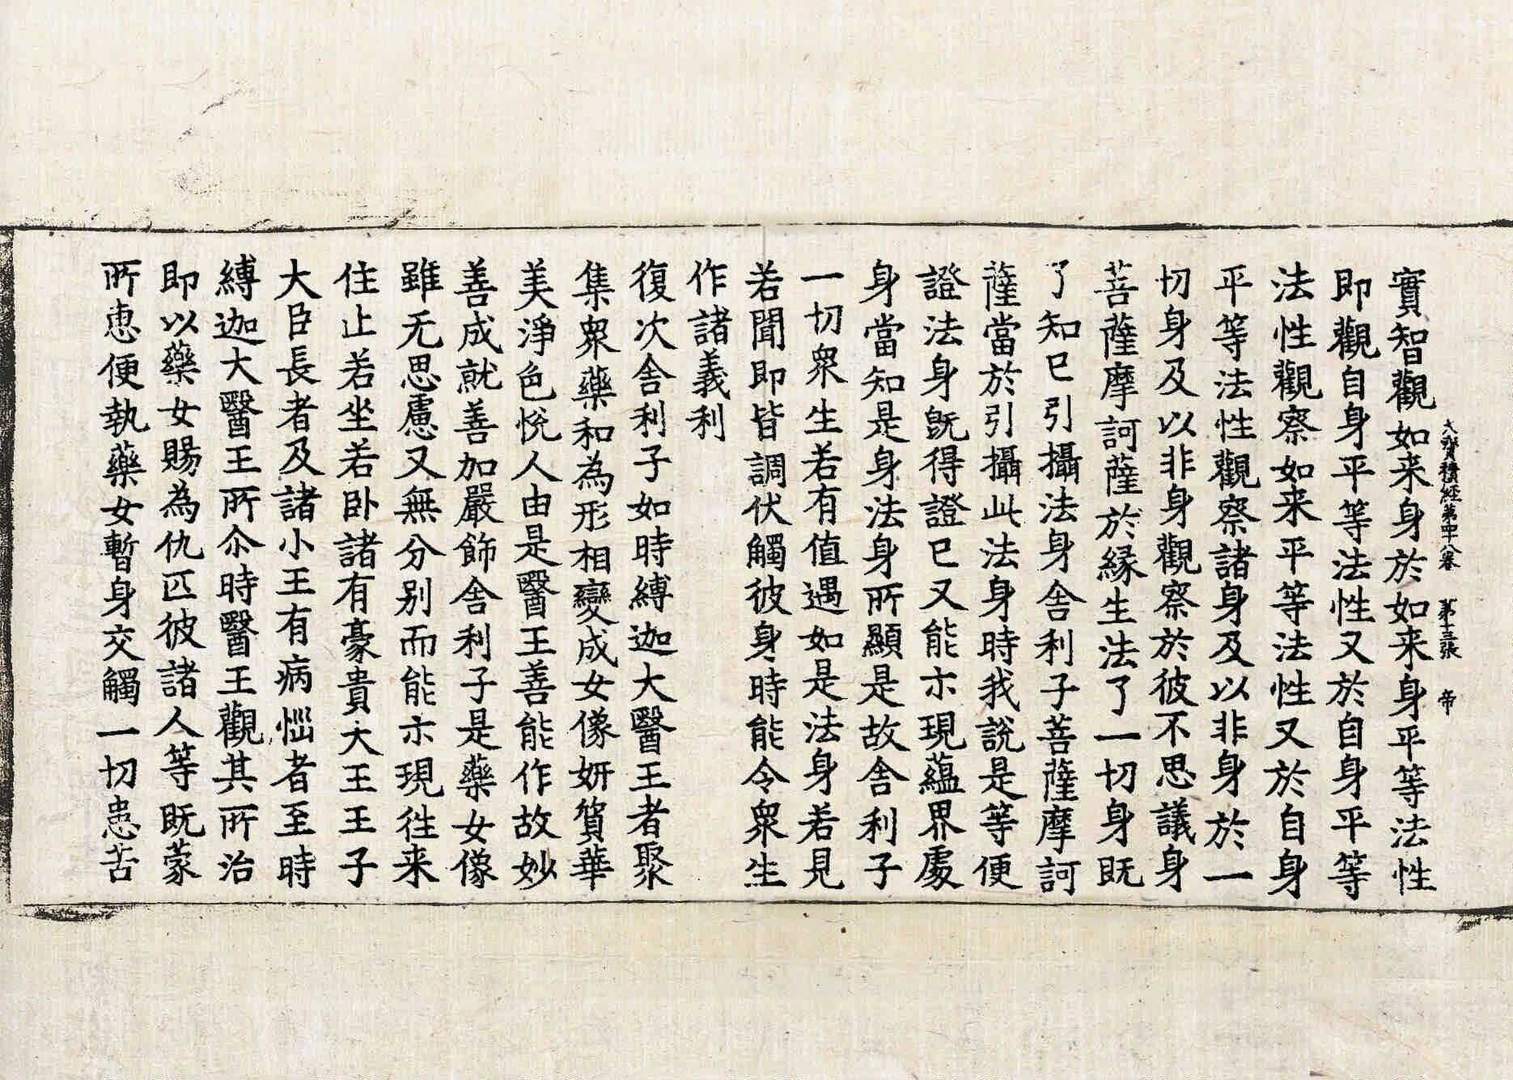 大寶積經第四十八卷　第十三張　帝
實智觀如来身於如来身平等法性
即觀自身平等法性又於自身平等
法性觀察如来平等法性又於自身
平等法性觀察諸身及以非身於一
切身及以非身觀察於彼不思議身
菩薩摩訶薩於緣生法了一切身既
了知已引攝法身舍利子菩薩摩訶
薩當於引攝此法身時我說是等便
證法身既得證已又能示現蘊界處
身當知是身法身所顯是故舍利子
一切眾生若有值遇如是法身若見
若聞即皆調伏觸彼身時能令眾生
作諸義利
復次舍利子如時縛迦大醫王者聚
集眾藥和為形相變成女像妍質華
美淨色悅人由是醫王善能作故妙
善成就善加嚴飾舍利子是藥女像
雖无思慮又無分别而能示現往来
住止若坐若卧諸有豪貴大王王子
大臣長者及諸小王有病惱者至時
縛迦大醫王所尒時醫王觀其所治
即以藥女賜為仇匹彼諸人等既蒙
所恵便執藥女暫身交觸一切患苦